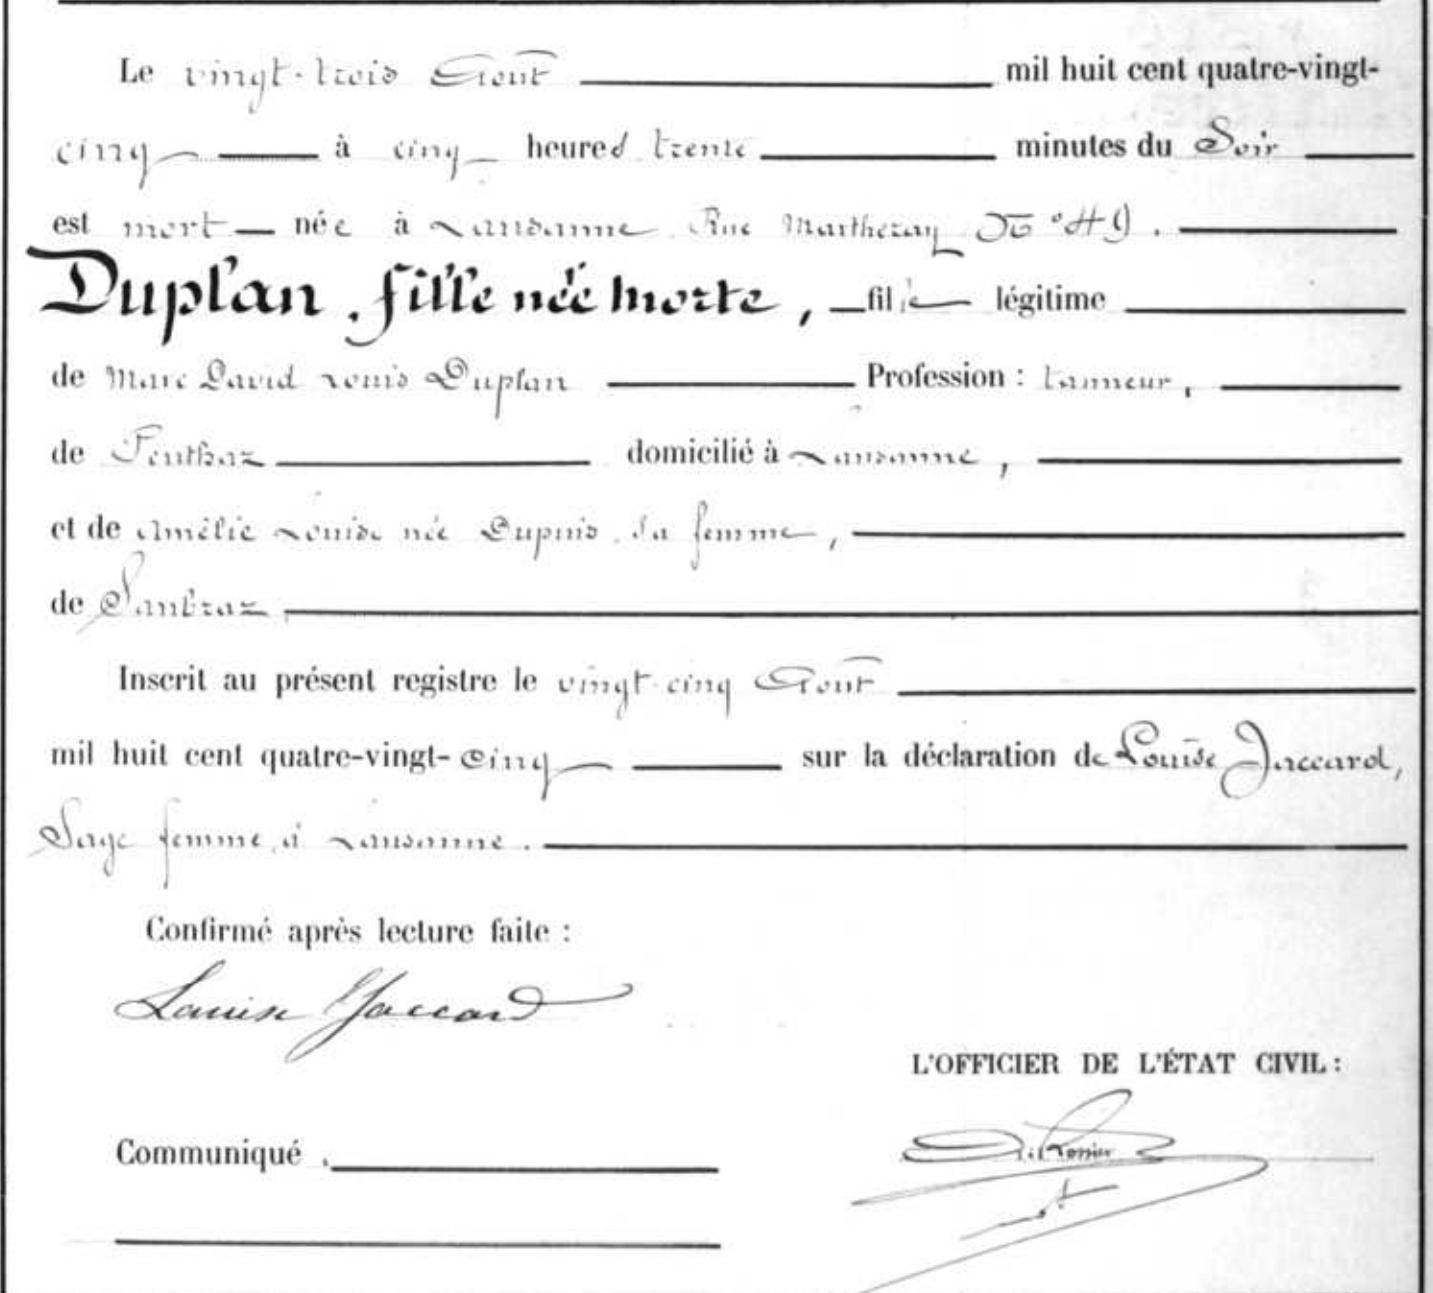 Le vingt-trois Août mil huit cent quatre-vingt-
cinq à cinq heures trente minutes du Soir
est mort-née à Lausanne Rue Martheray N° 49.
Duplan, fille née morte, fille légitime
de Marc David Louis Duplan Profession : tanneur,
de Penthaz domicilié à Lausanne,
et de Amélie Louise née Dupuis, sa femme,
de
Inscrit au présent registre le vingt-cinq Août
mil huit cent quatre-vingt-cinq sur la déclaration de Louise Jaccard,
Sage femme, à Lausanne.
Confirmé après lecture faite :
Louise Jaccard
L'OFFICIER DE L'ÉTAT CIVIL :
Communiqué